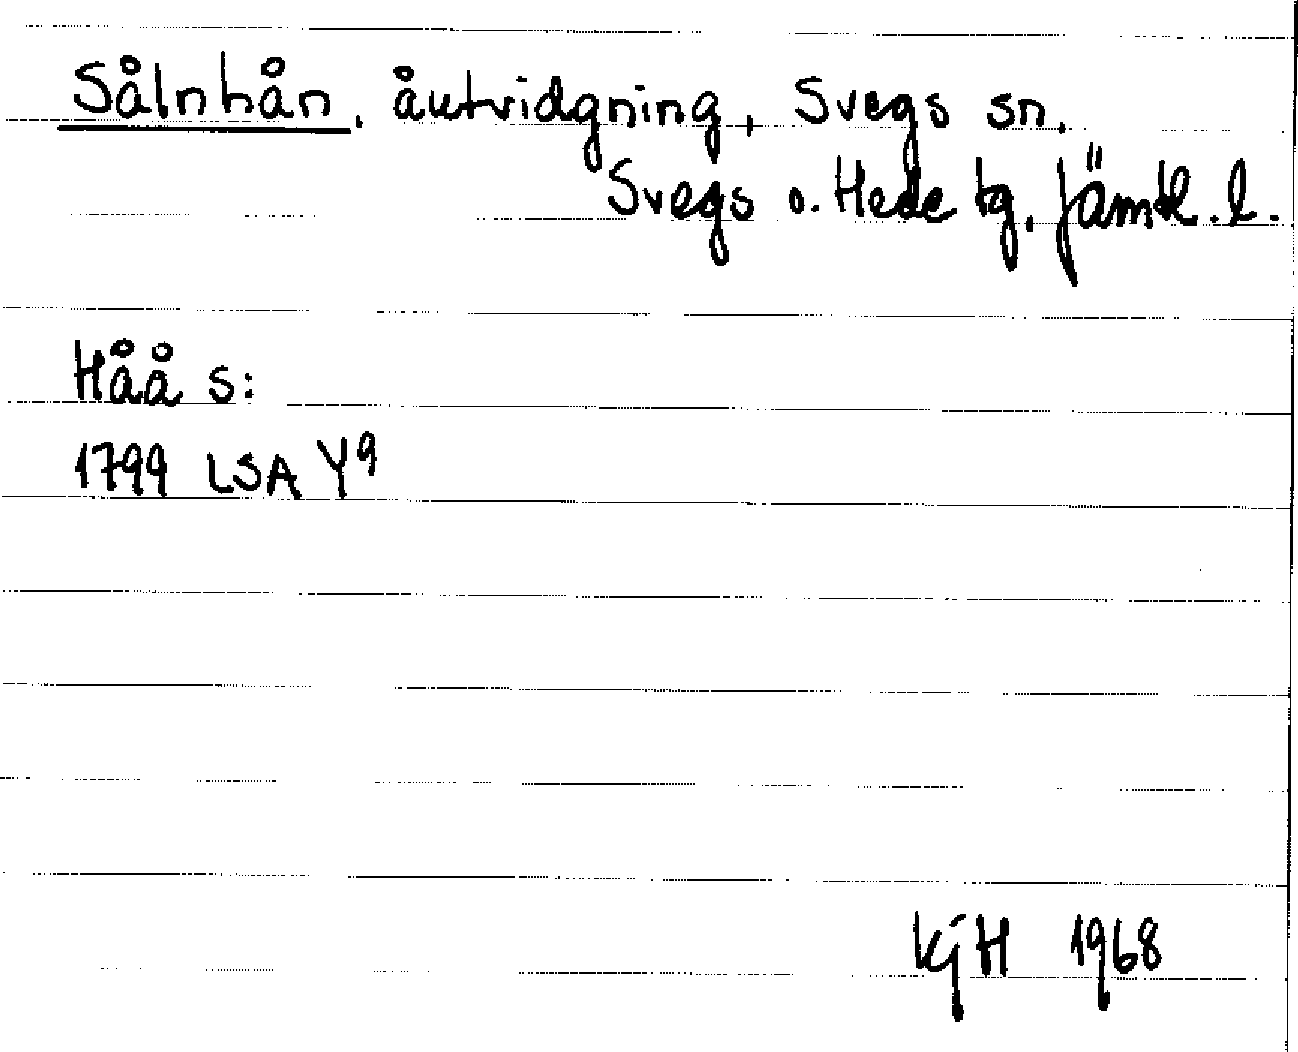 Sålnhån, åutvidgning, Svegs sn.
Svegs o. Hede tg. Jämtl. l.
Håå s:
1799 LSA Y9
KjH 1968